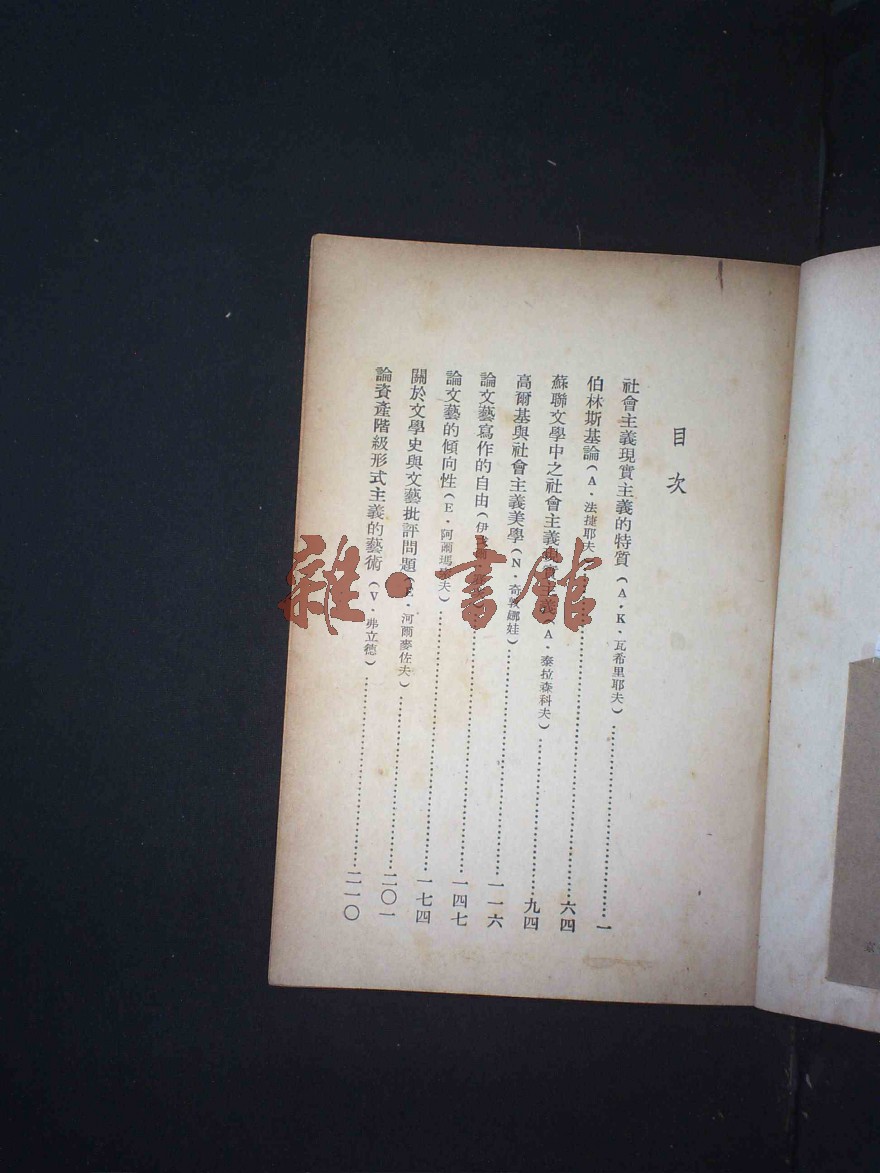 目次
社會主義現實主義的特質(A·K·瓦希里耶夫)……一
伯林斯基論(A·法捷耶夫……六四
蘇聯文學中之社會主義現實主義(A·泰拉森科夫)……九四
高爾基與社會主義美學(N·奇敦娜娃)……一一六
論文藝寫作的自由(伊……一四七
論文藝的傾向性(E·阿爾瑪 夫)……一七四
關於文學史與文藝批評問題(E·河爾麥佐夫)……二〇一
論資產階級形式主義的藝術(V·弗立德)……二一〇
雜·書館